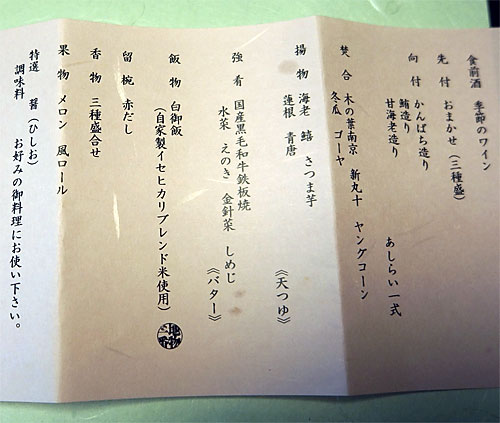 食前酒 季節のワイン
先付 おまかせ（三種盛）
向付 かんぱち造り
鮪造り
甘海老造り あしらい一式
焚合 木の葉南京 新丸十 ヤングコーン
冬瓜 ゴーヤ
揚物 海老 鱚 さつま芋
蓮根 青唐 《天つゆ》
強肴 国産黒毛和牛鉄板焼
水菜 えのき 金針菜 しめじ
《バター》
飯物 白御飯
（自家製イセヒカリブレンド米使用）
留椀 赤だし
香物 三種盛合せ
果物 メロン 風ロール
特選 醤（ひしお）
調味料 お好みの御料理にお使い下さい。